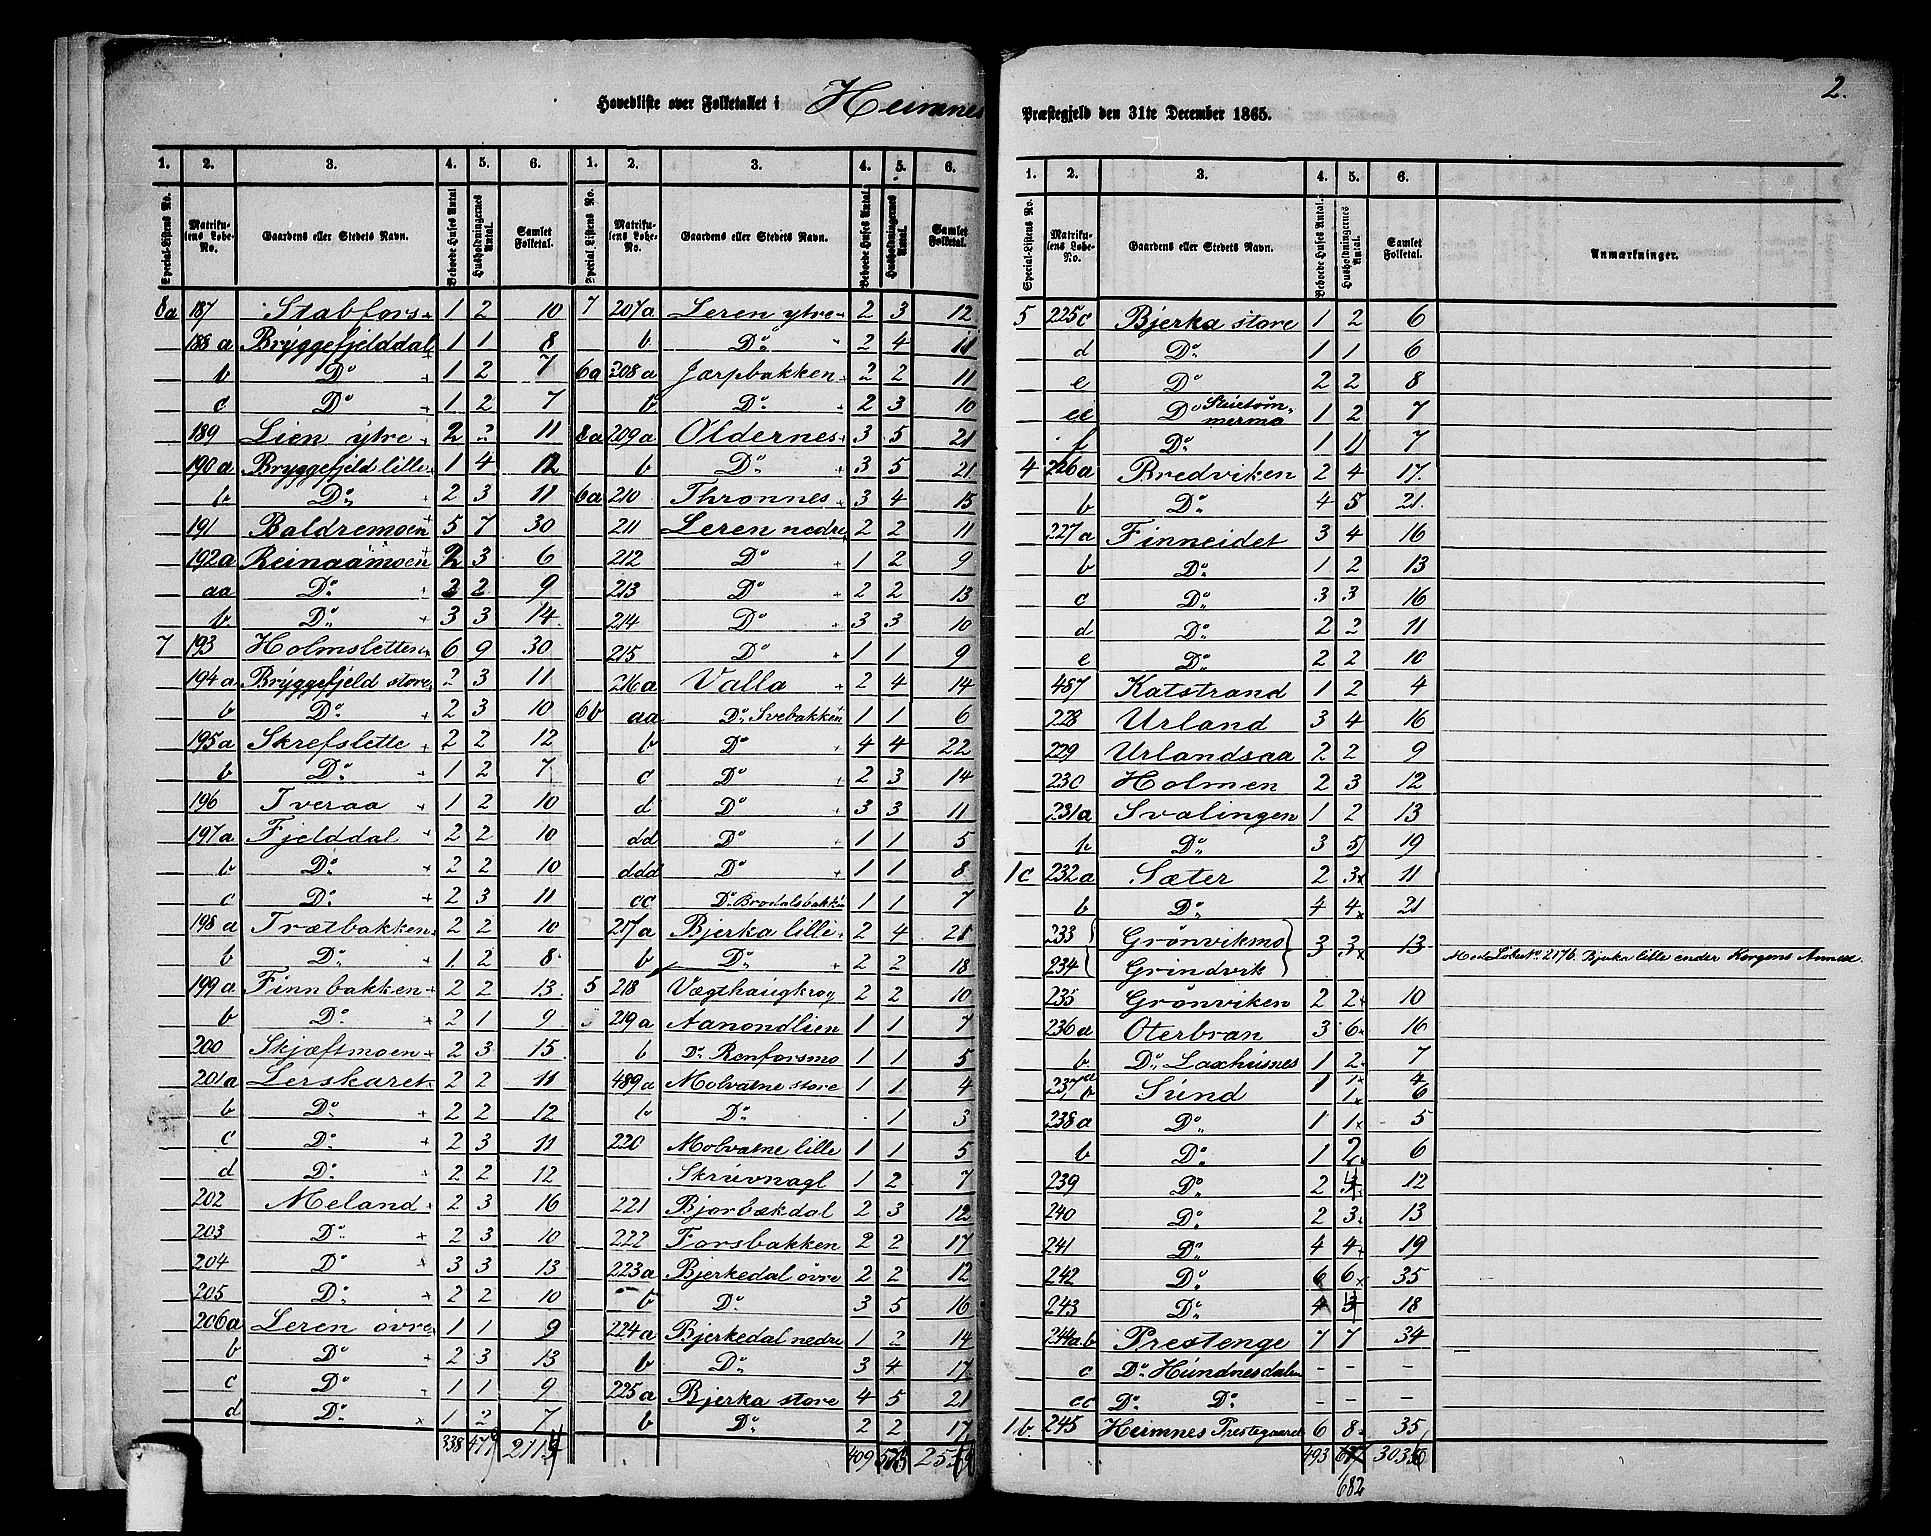 2.
Hovedliste over Folketallet i Heimnes Præstegjeld den 31te December 1865.
1. 2. 3. 4. 5. 6.
Special-Listens No. Matrikulens Løbe-No. Gaardens eller Stedets Navn. Beboede Huses Antal. Husholdningernes Antal. Samlet Folketal.
8a 187 Stabfors 1 2 10
188a Bryggefjelddal 1 1 8
b Do 1 2 7
c Do 1 2 7
189 Lien ytre 2 2 11
190a Bryggefjeld lille 1 4 12
b Do 2 3 11
191 Baldremoen 5 7 30
192a Reinaamoen 2 3 6
aa Do 2 2 9
b Do 3 3 14
7 193 Holmsletten 6 9 30
194a Bryggefjeld store 2 3 11
b Do 2 3 10
195a Skrefslette 2 2 12
b Do 1 2 7
196 Tveraa 1 2 10
197a Fjelddal 2 2 10
b Do 2 2 10
c Do 2 3 11
198a Trætbakken 2 2 10
b Do 1 2 8
199a Finnbakken 2 2 13
b Do 2 1 9
200 Skjæftmoen 2 3 15
201a Lerskaret 2 2 11
b Do 2 2 12
c Do 2 3 11
d Do 2 2 12
202 Meland 2 3 16
203 Do 2 3 10
204 Do 3 3 13
205 Do 2 2 10
206a Leren øvre 1 1 9
b Do 2 3 13
c Do 1 1 9
d Do 1 2 7
338
1. 2. 3. 4. 5. 6.
Special Listens No. Matrikulens Løbe-No. Gaardens eller Stedets Navn. Beboede Huses Antal. Husholdningernes Antal. Samlet Folketal.
7 207a Leren ytre 2 3 12
b Do 2 4 11
6a 208a Jarpbakken 2 2 11
b Do 2 3 10
8a 209a Oldernes 3 5 21
b Do 3 5 21
6a 210 Thronnes 3 4 15
211 Leren nedre 2 2 11
212 Do 1 2 9
213 Do 2 2 13
214 Do 3 3 10
215 Do 1 1 9
216a Valla 2 4 14
6b aa Do Svebakken 1 1 6
b Do 4 4 22
c Do 2 3 14
d Do 3 3 11
dd Do 1 1 5
ddd Do 1 1 8
cc Do Brodalsbakken 1 1 7
217a Bjerka lille 2 4 21
b Do 2 2 18
5 218 Vægthaugkrog 2 2 10
219a Aanondlien 1 1 7
b Do Renforsmo 1 1 5
489a Molvatne store 1 1 4
b Do . 1 3
220 Molvatne lille 1 1 5
Skruvnagl 1 2 7
221 Bjorbækdal 2 3 12
222 Forsbakken 2 2 17
223a Bjerkedal øvre 2 2 12
b Do 3 5 16
224a Bjerkedal nedre 1 2 14
b Do 3 4 17
225a Bjerka store 4 5 21
b Do 2 2 17
409
1. 2. 3. 4. 5. 6.
Special-Listens No. Matrikulens Løbe-No. Gaardens eller Stedets Navn. Beboede Huses Antal. Husholdningernes Antal. Samlet Folketal. Anmærkninger.
5 225c Bjerka store 1 2 6
d Do 1 1 6
e Do 2 2 8
ee Do 1 2 7
f Do 1 1 7
4 226a Bredviken 2 4 17
b Do 4 5 21
227a Finneidet 3 4 16
b Do 1 2 13
c Do 3 3 16
d Do 2 2 11
e Do 2 2 10
487 Katstrand 1 2 4
228 Urland 3 4 16
229 Urlandsaa 2 2 9
230 Holmen 2 3 12
231a Svalingen 1 2 13
b Do 3 5 19
1c 232a Sæter 2 3 11
b Do 4 4 21
233 Grønvikmo 3 3 13
234 Grindvik Med Løbe No 217b Bjerka lille under Korgens Annex.
235 Grønviken 2 2 10
236a Oterbran 3 6 16
b Do Laxhusnes 1 2 7
237a Sund 1 1 4
b 1 6
238a Do 1 1 5
b Do 1 2 6
239 Do 2 12
240 Do 2 3 13
241 Do 4 4 19
242 Do 6 6 35
243 Do 4 18
244a.b Prestenge 7 7 34
c Do Hundnesdalen - - -
cc Do Do - - -
1.b. 245 Heimnes Prestegaard 6 8 35
493
682